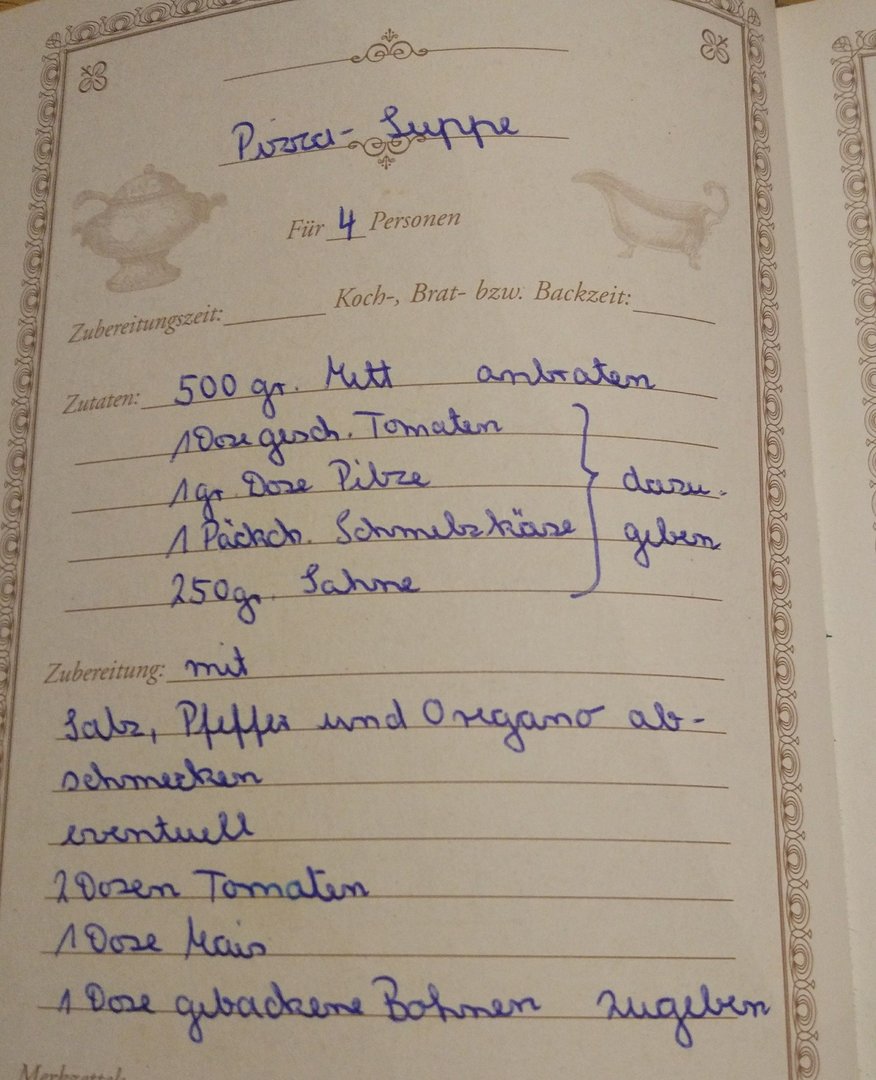 Pizza- Suppe
Für 4 Personen
Zubereitungszeit: Koch-, Brat- bzw. Backzeit:
Zutaten: 500 gr. Mett anbraten
1 Dose gesch. Tomaten
1 gr. Dose Pilze dazu-
1 Päckch. Schmelzkäse geben
250 gr. Sahne
Zubereitung: mit
Salz, Pfeffer und Oregano ab-
schmecken
eventuell
2 Dosen Tomaten
1 Dose Mais
1 Dose gebackene Bohnen zugeben
Merkzettel: